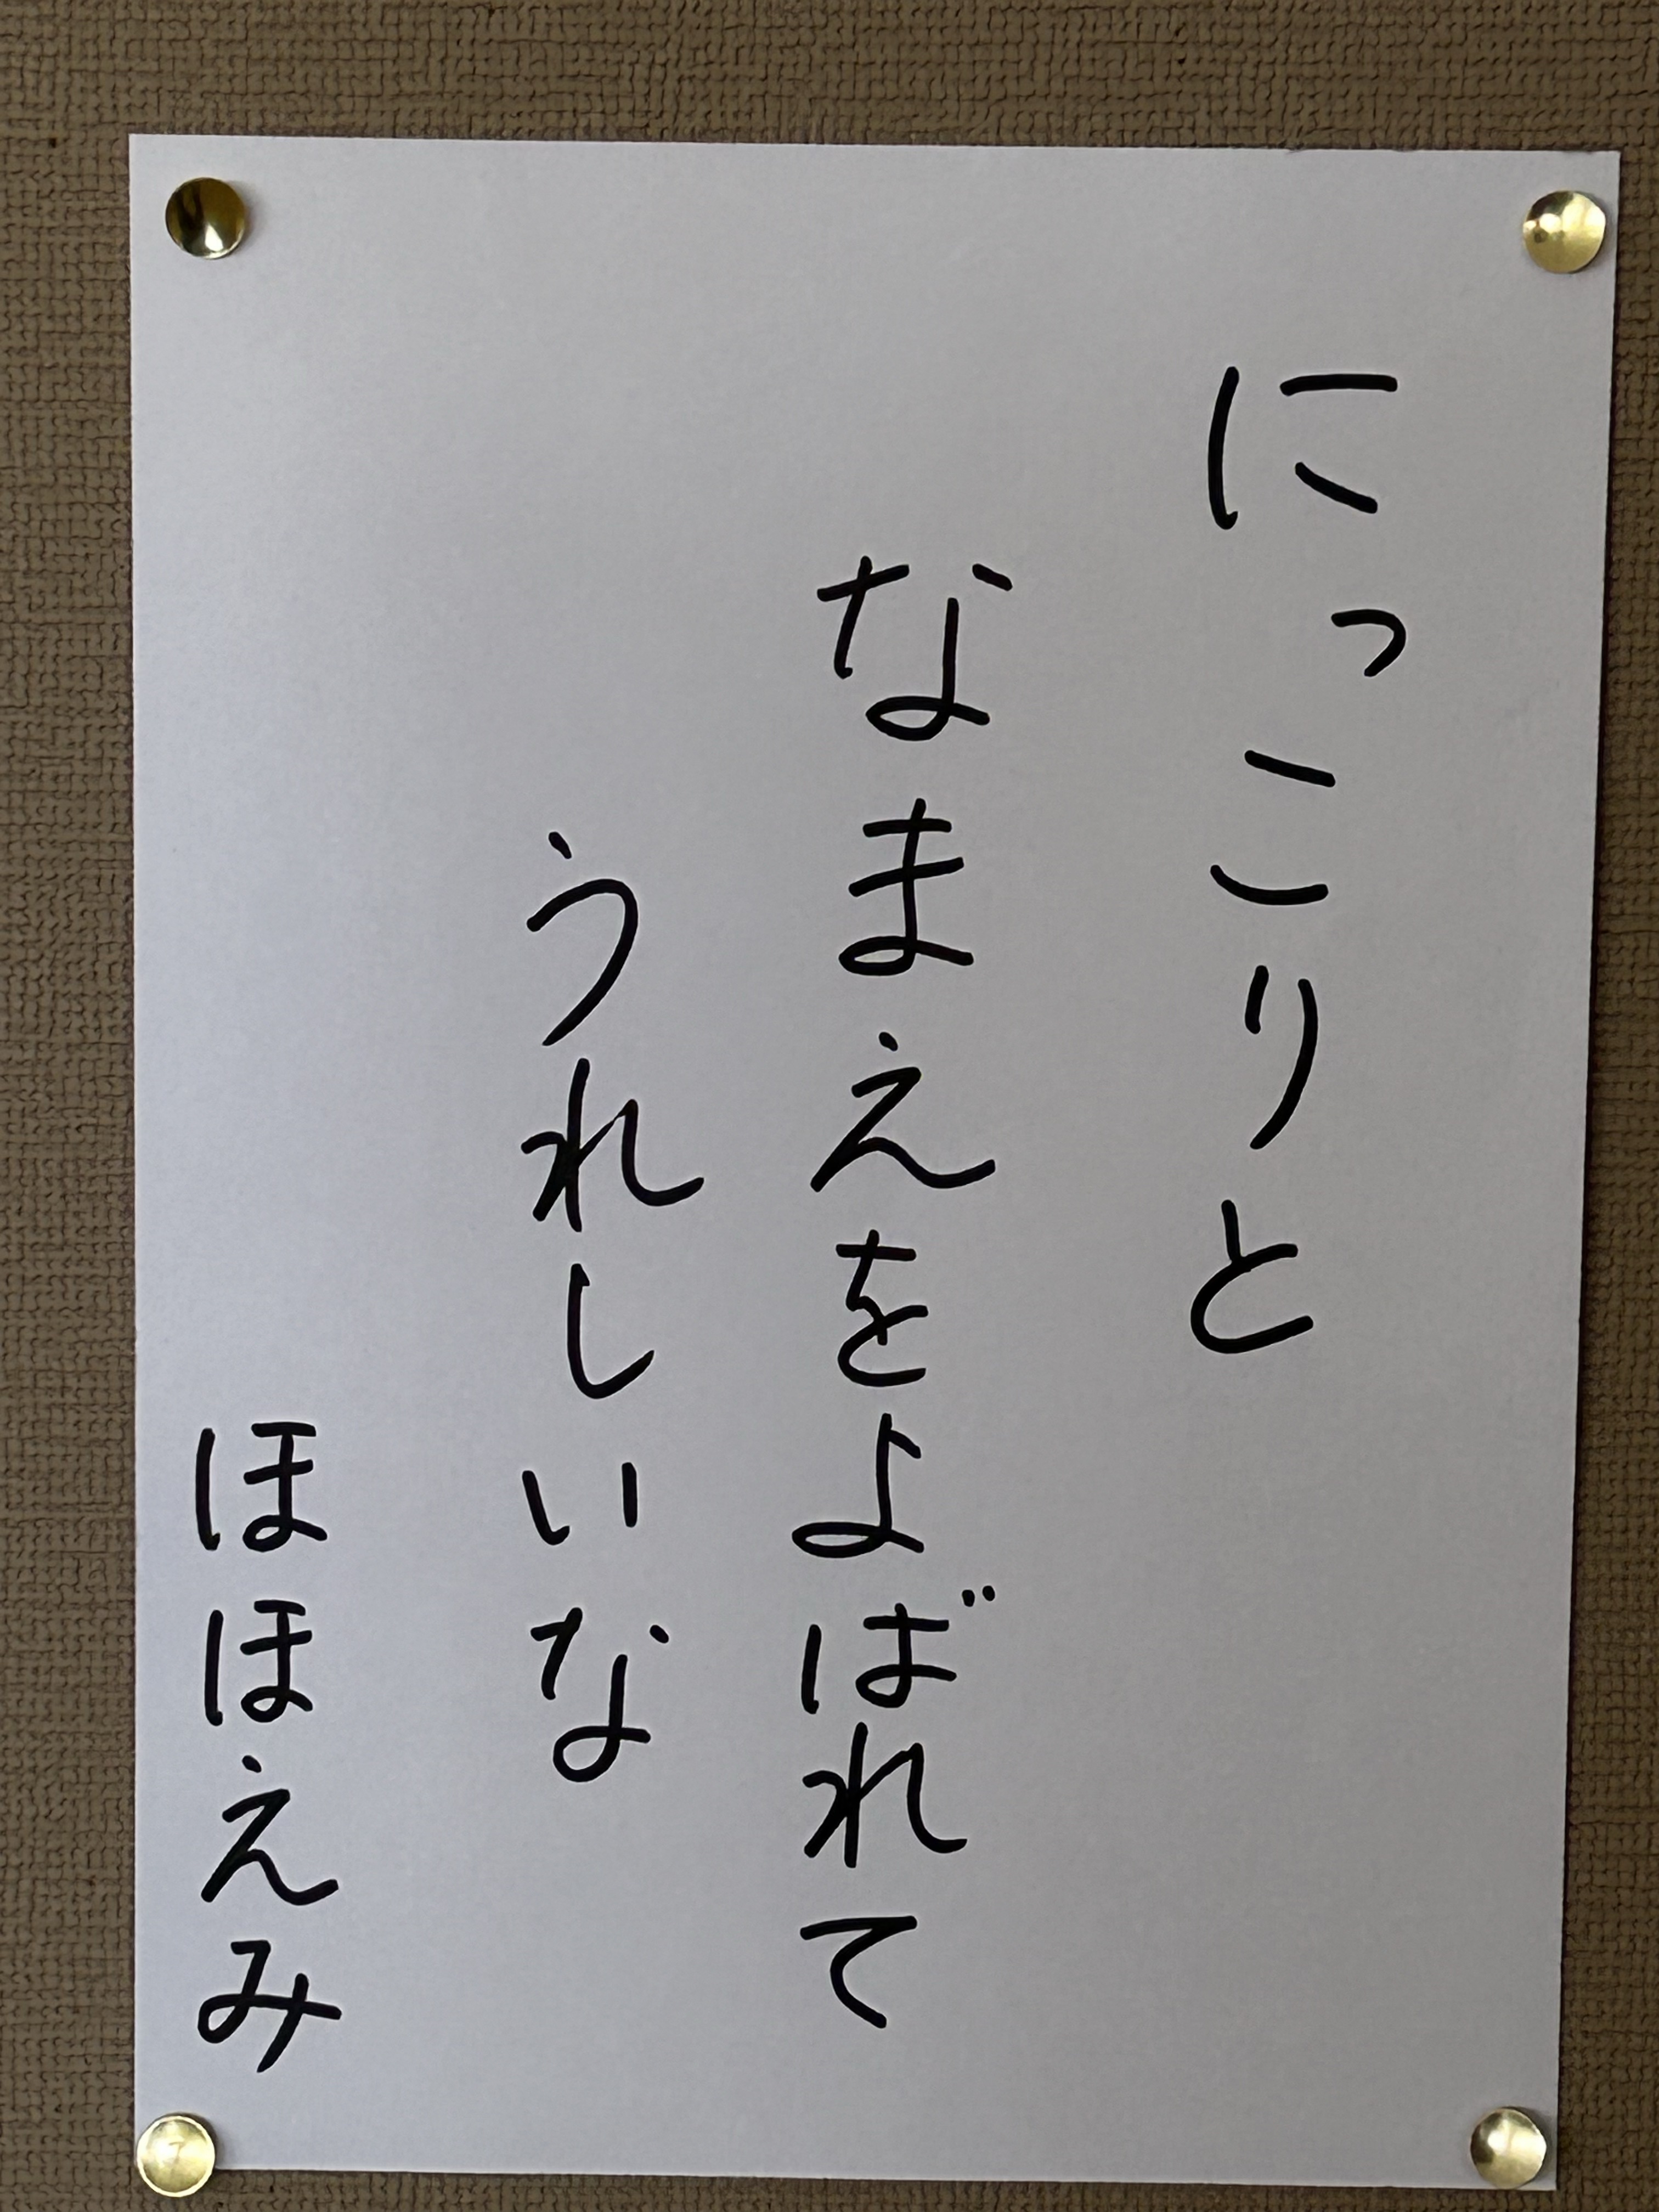 にっこりと
なまえをよばれて
うれしいな
ほほえみ